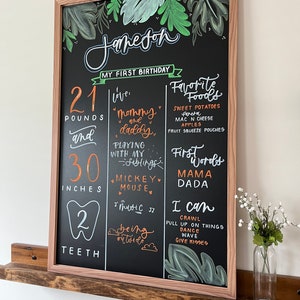 Jameson
MY FIRST BIRTHDAY
21
POUNDS
and
30
INCHES
2
TEETH
love:
mommy
and
daddy
PLAYING
WITH MY
siblings
MICKEY
MOUSE
music
being
outside
Favorite
Foods
SWEET POTATOES
MAC N CHEESE
APPLES
FRUIT SQUEEZE POUCHES
First
Words
MAMA
DADA
I can
CRAWL
PULL UP ON THINGS
DANCE
WAVE
GIVE KISSES